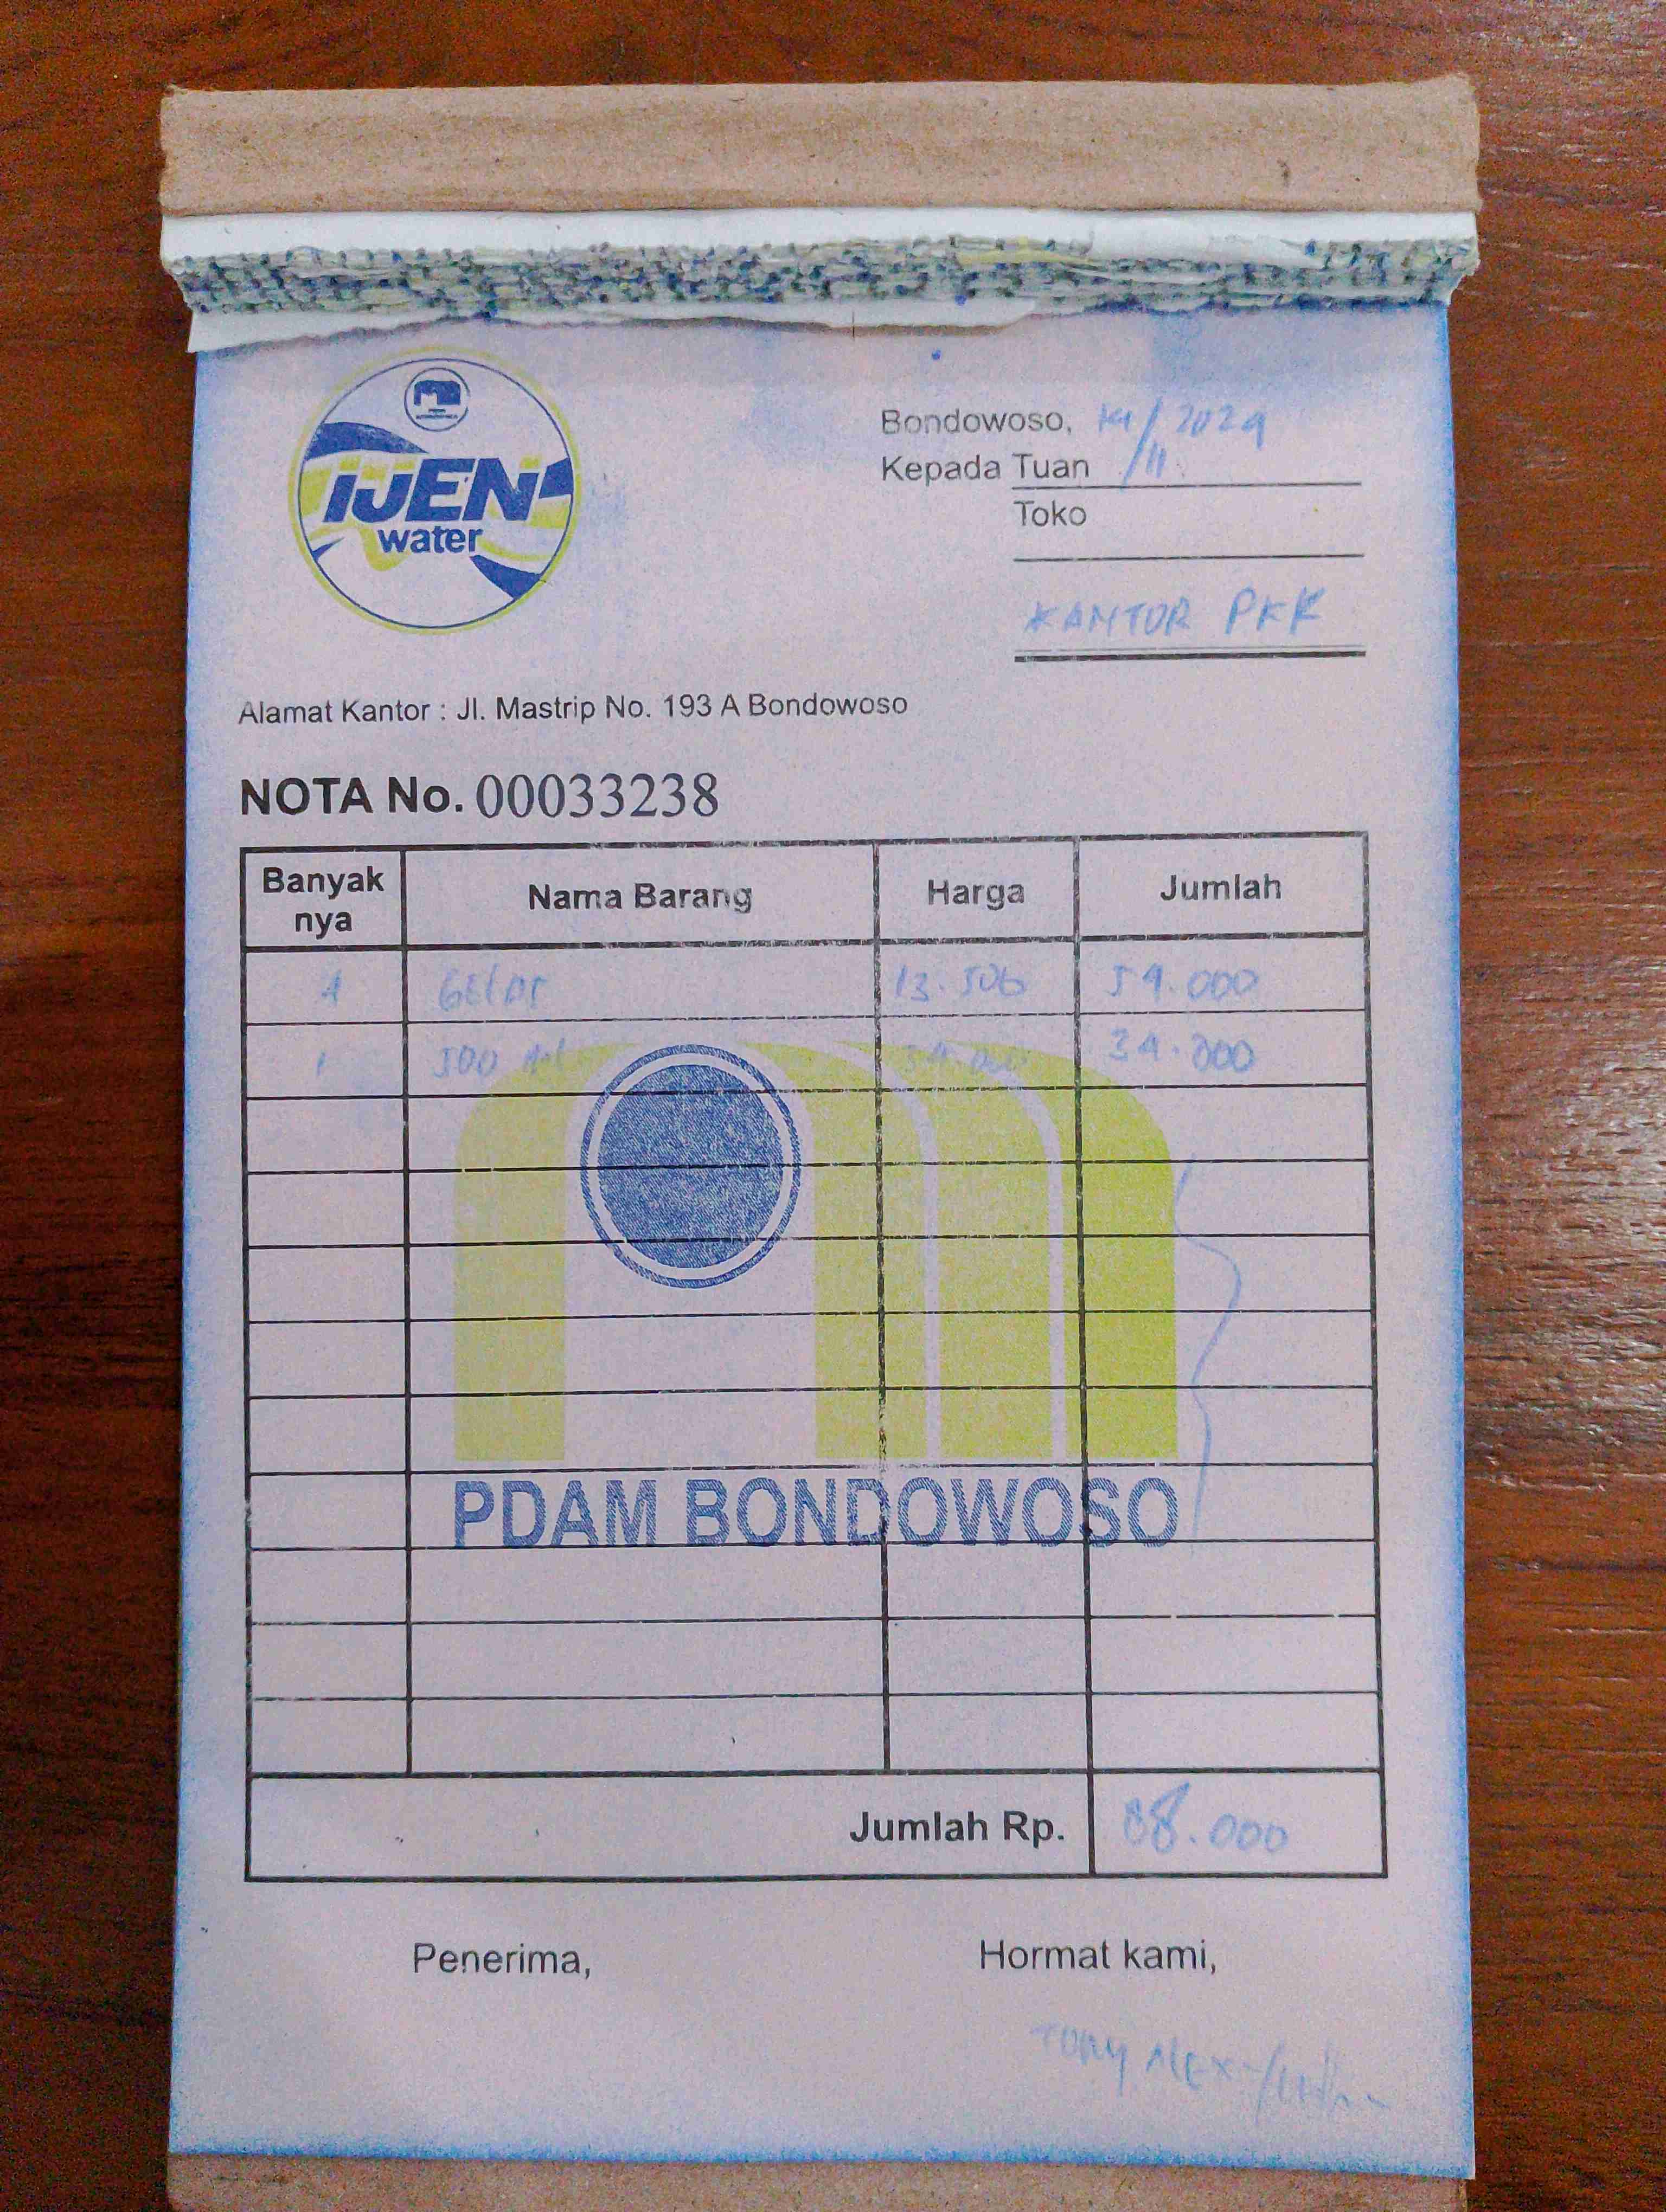 IJEN
water
Bondowoso, 14/11 2024
Kepada Tuan
Toko
KANTOR PKK
Alamat Kantor : Jl. Mastrip No. 193 A Bondowoso
NOTA No. 00033238
Banyak nya Nama Barang Harga Jumlah
4 GELAS 13.500 54.000
1 500 ml 34.000 34.000
PDAM BONDOWOSO
Jumlah Rp. 88.000
Penerima, Hormat kami,
TONY